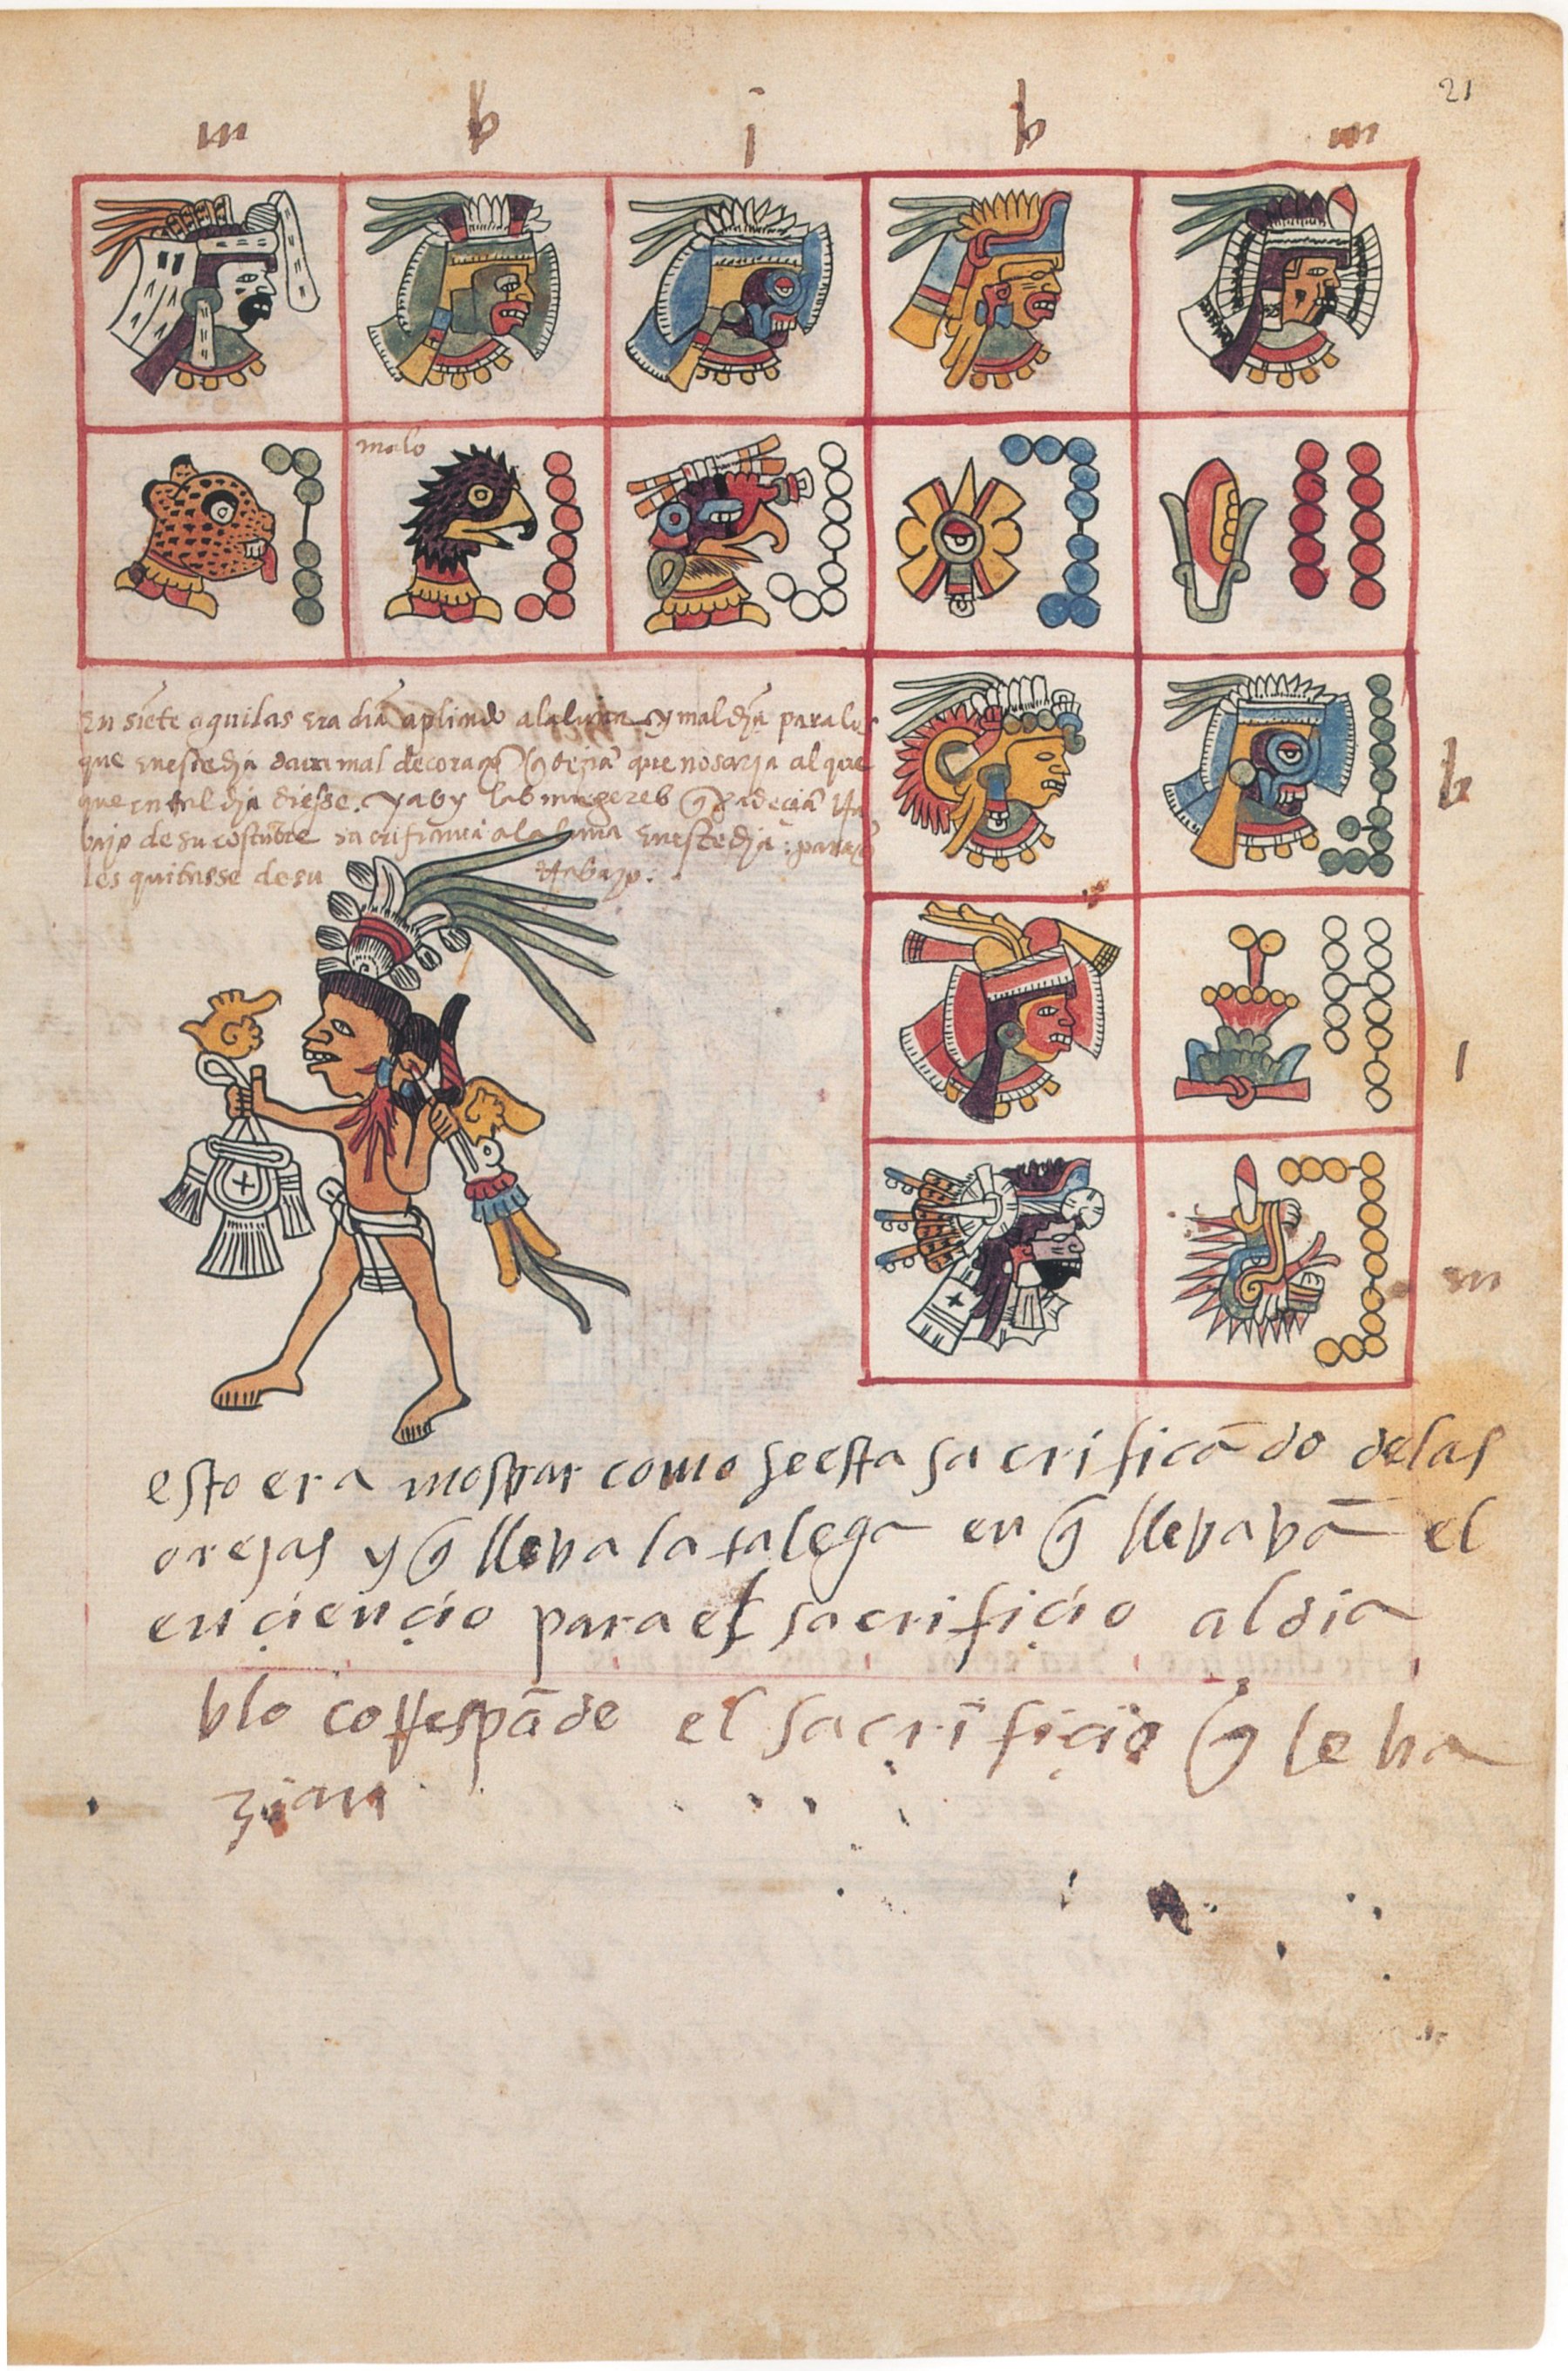 21
m b i b m
malo
En siete aguilas era dia aplicado a la luna y mal dia para los
que en este dia mal de coraçõ q deziã que no saria al que
que en tal dia diesse. y a oy las mugeres q padeçiã tra
bajo de su costũbre sacrificavã a la luna en este dia: para q
les quitasse de su trabajo:
b
i
m
esto era mostrar como se esta sacrificãdo delas
orejas y q̃ lleva la talega en q̃ llevabã el
ençiençio para el sacrifiçio al dia
blo correspãde el sacrifiçio q̃ le ha
zian